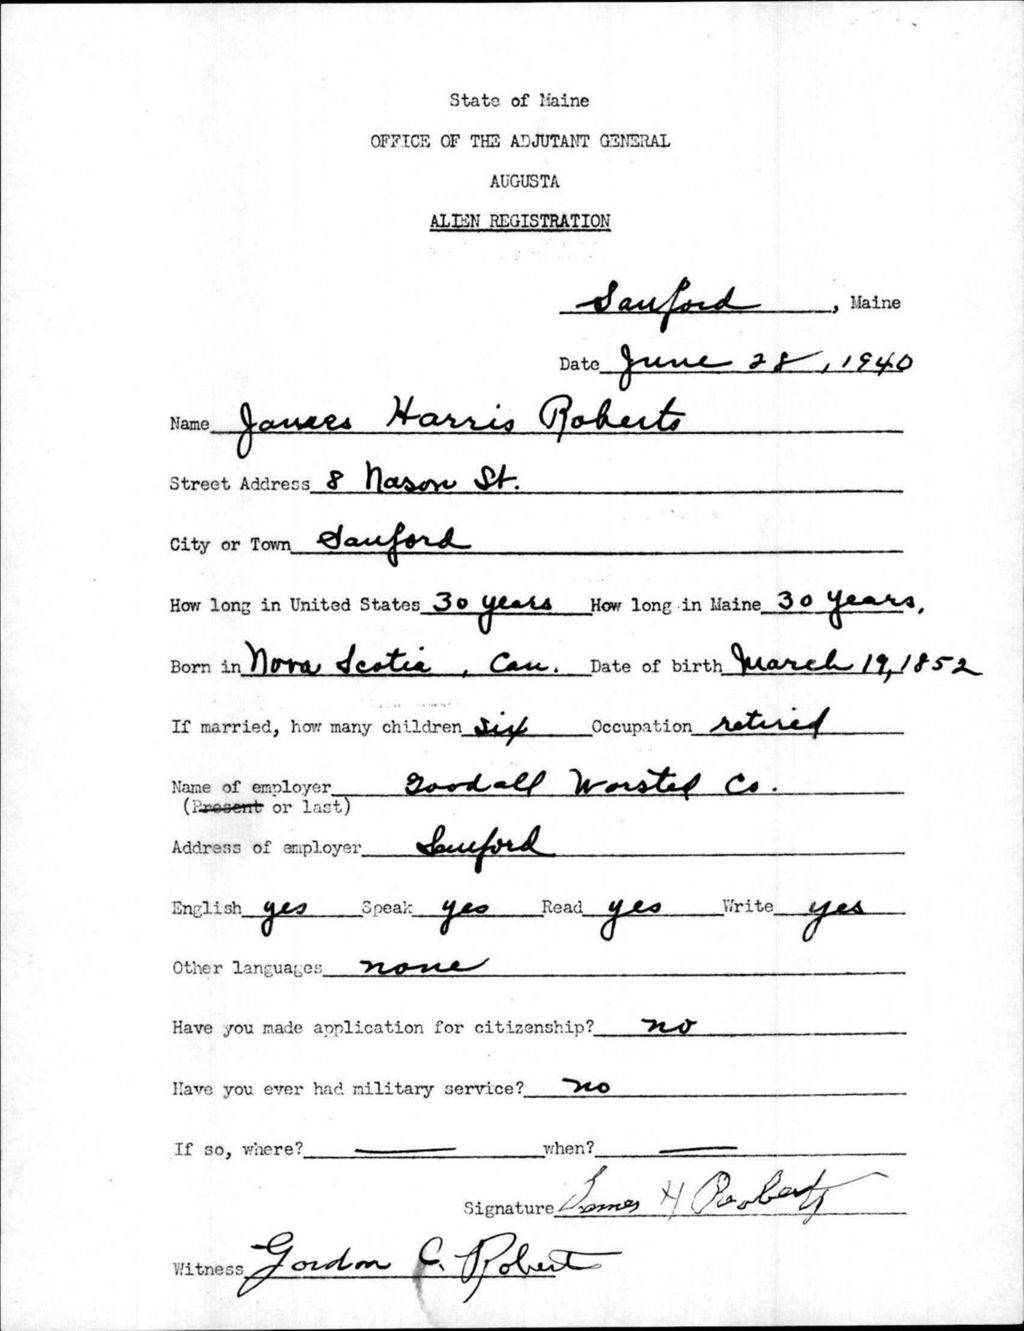 State of Maine
OFFICE OF THE ADJUTANT GENERAL
AUGUSTA
ALIEN REGISTRATION
Sanford, Maine
Date June 28, 1940
Name James Harris Roberts
Street Address 8 Nason St.
City or Town Sanford
How long in United States 30 years How long in Maine 30 years,
Born in Nova Scotia, Can. Date of birth March 19, 1852
If married, how many children six Occupation retired
Name of employer Goodall Worsted Co.
(Present or last)
Address of employer Sanford
English yes Speak yes Read yes Write yes
Other languages none
Have you made application for citizenship? no
Have you ever had military service? no
If so, where? when?
Signature James H Roberts
Witness Gordon C. Robert